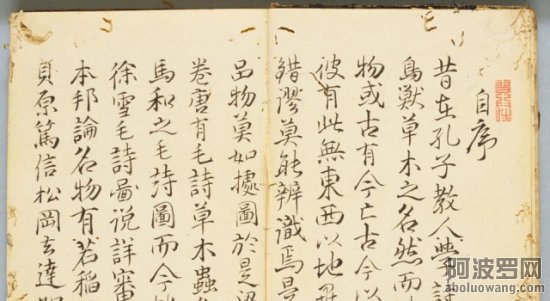 自序
昔在孔子教人學詩
鳥獸草木之名然而
物或古有今亡古今以
彼有此無東西以地
錯謬莫能辨識焉是
品物莫如據圖於是
卷唐有毛詩草木蟲
馬和之毛詩圖而今
徐雪毛詩啚說詳審
本邦論名物有若稻
貝原篤信松岡玄達
阿波罗网
aboluowang.com